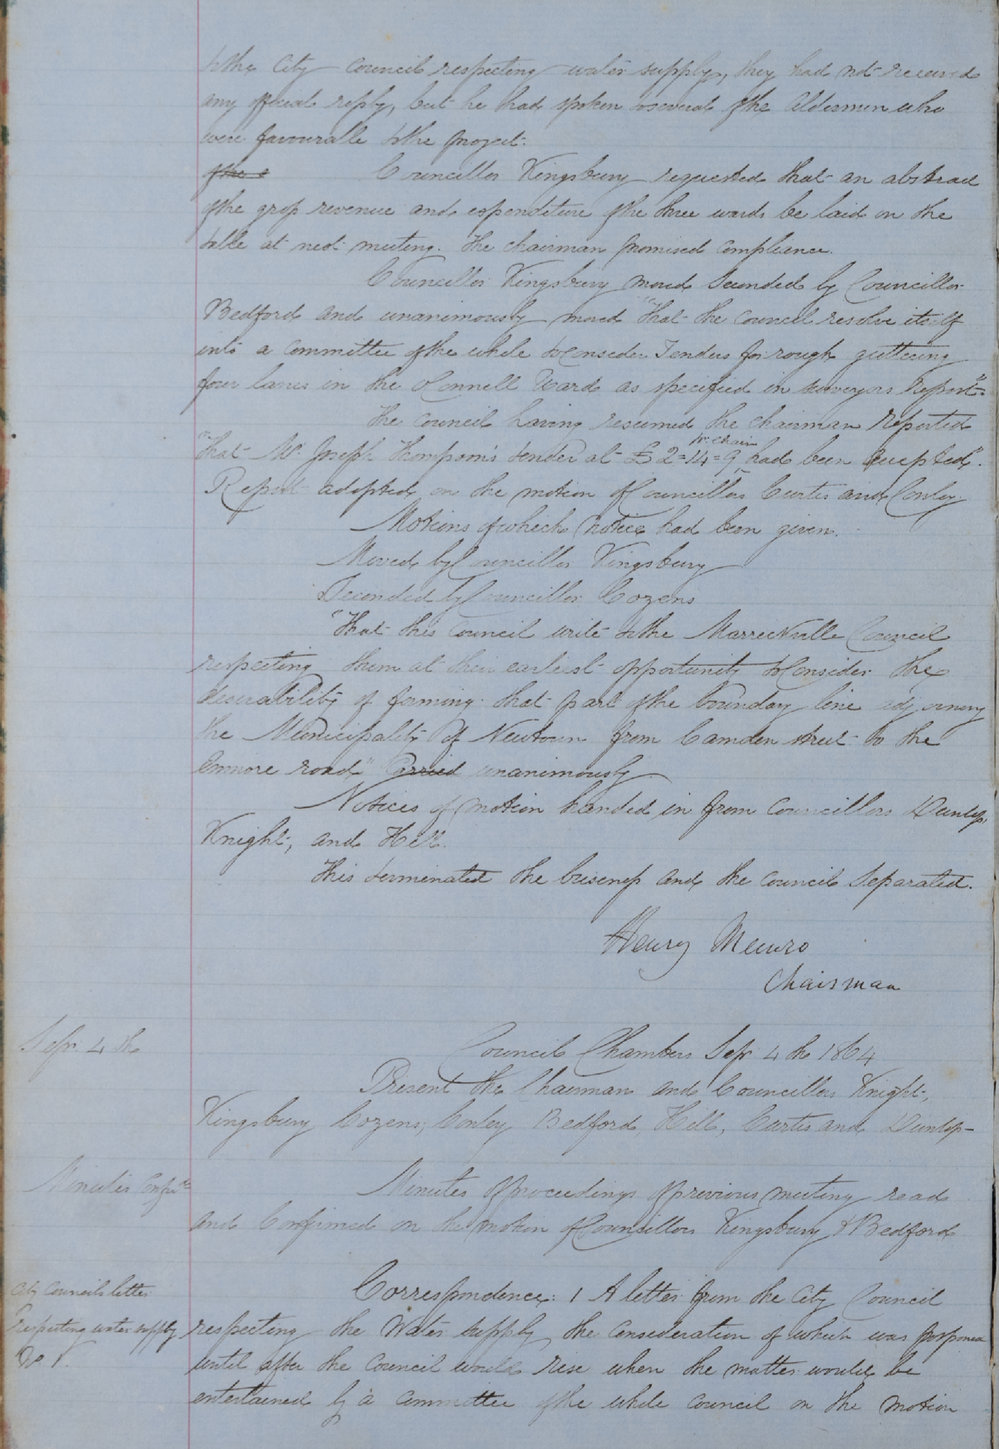 to the City Council respecting water supply, they had not received
any official reply, but he had spoken to several of the Aldermen who
were favourable to the project.
of the c Councillor Kingsbury requested that an abstract
of the gross revenue and expenditure of the three wards be laid on the
table at next meeting. The chairman promised compliance.
Councillor Kingsbury moved Seconded by Councillor
Bedford and unanimously moved "That the Council resolve itself
into a Committee of the whole to Consider Tenders for rough guttering
four lanes in the O'Connell Ward as specified in surveyors Report"
The Council having resumed the Chairman reported
pr chain
"that Mr Joseph Thompson's tender at £2=14=9 had been accepted".
Report adopted on the motion of Councillors Curtis and Conley
Motions of which notice had been given.
Moved by Councillor Kingsbury
Seconded by Councillor Cozens
"That this Council write to the Marrickville Council
respecting them at their earliest opportunity to Consider the
desirability of forming that part of the boundary line adjoining
the Municipality of Newtown from Camden street to the
Enmore road" Carried unanimously
Notices of motion handed in from Councillors Dunlop,
Knight, and Hill.
This terminated the business and the Council Separated.
Henry Munro
Chairman
Sepr. 4th
Council Chambers Sepr 4th 1864
Present the Chairman and Councillors Knight,
Kingsbury Cozens, Conley Bedford Hill, Curtis and Dunlop—
Minutes Confirmd
Minutes of proceedings of previous meeting read
and Confirmed on the motion of Councillors Kingsbury & Bedford
City Councils letter
Respecting water supply
No. 1.
Correspondence: 1 A letter from the City Council
respecting the Water supply, the Consideration of which was postponed
until after the Council would rise when the matter would be
entertained by a Committee of the whole Council on the motion